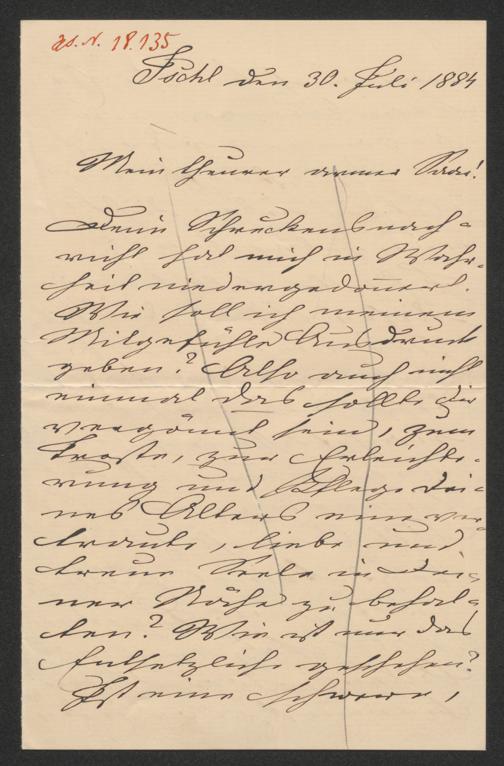 Js. N. 18.135
Ischl den 30. Juli 1884
Mein theurer armer Saar!
Deine Schreckensnach-
richt hat mich in Wahr-
heit niedergedonnert.
Wie soll ich meinem
Mitgefühle Ausdruck
geben? Also auch nicht
einmal das sollte Dir
vergönnt sein, zum
Troste, zur Erleichte-
rung und Pflege Dei-
nes Alters eine ver-
traute, liebe und
treue Seele in Dei-
ner Nähe zu behal-
ten? Wie ist nur das
Entsetzliche geschehen?
Ist eine schwere,